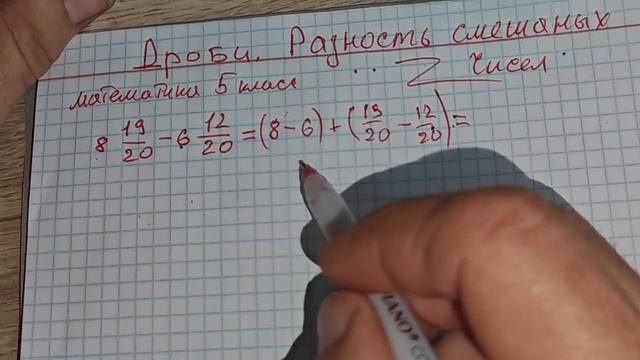 Дроби. Разность смешаных
чисел.
математика 5 класа
8 19/20 - 6 12/20 = (8 - 6) + (19/20 - 12/20) =